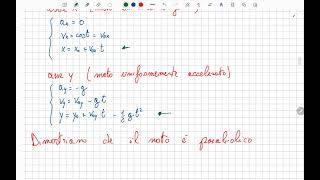 aₓ = 0
vₓ = cost = v₀ₓ
x = x₀ + v₀ₓ t
asse y ( moto uniformemente accelerato )
a_y = -g
v_y = v₀y - g t
y = y₀ + v₀y t - ½ g t²
Dimostriamo che il moto è parabolico